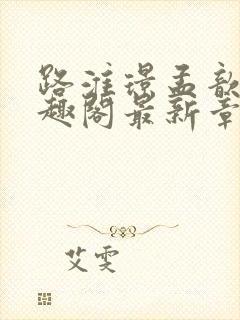 路淮璟孟歆
趣阁最新章
艾雯